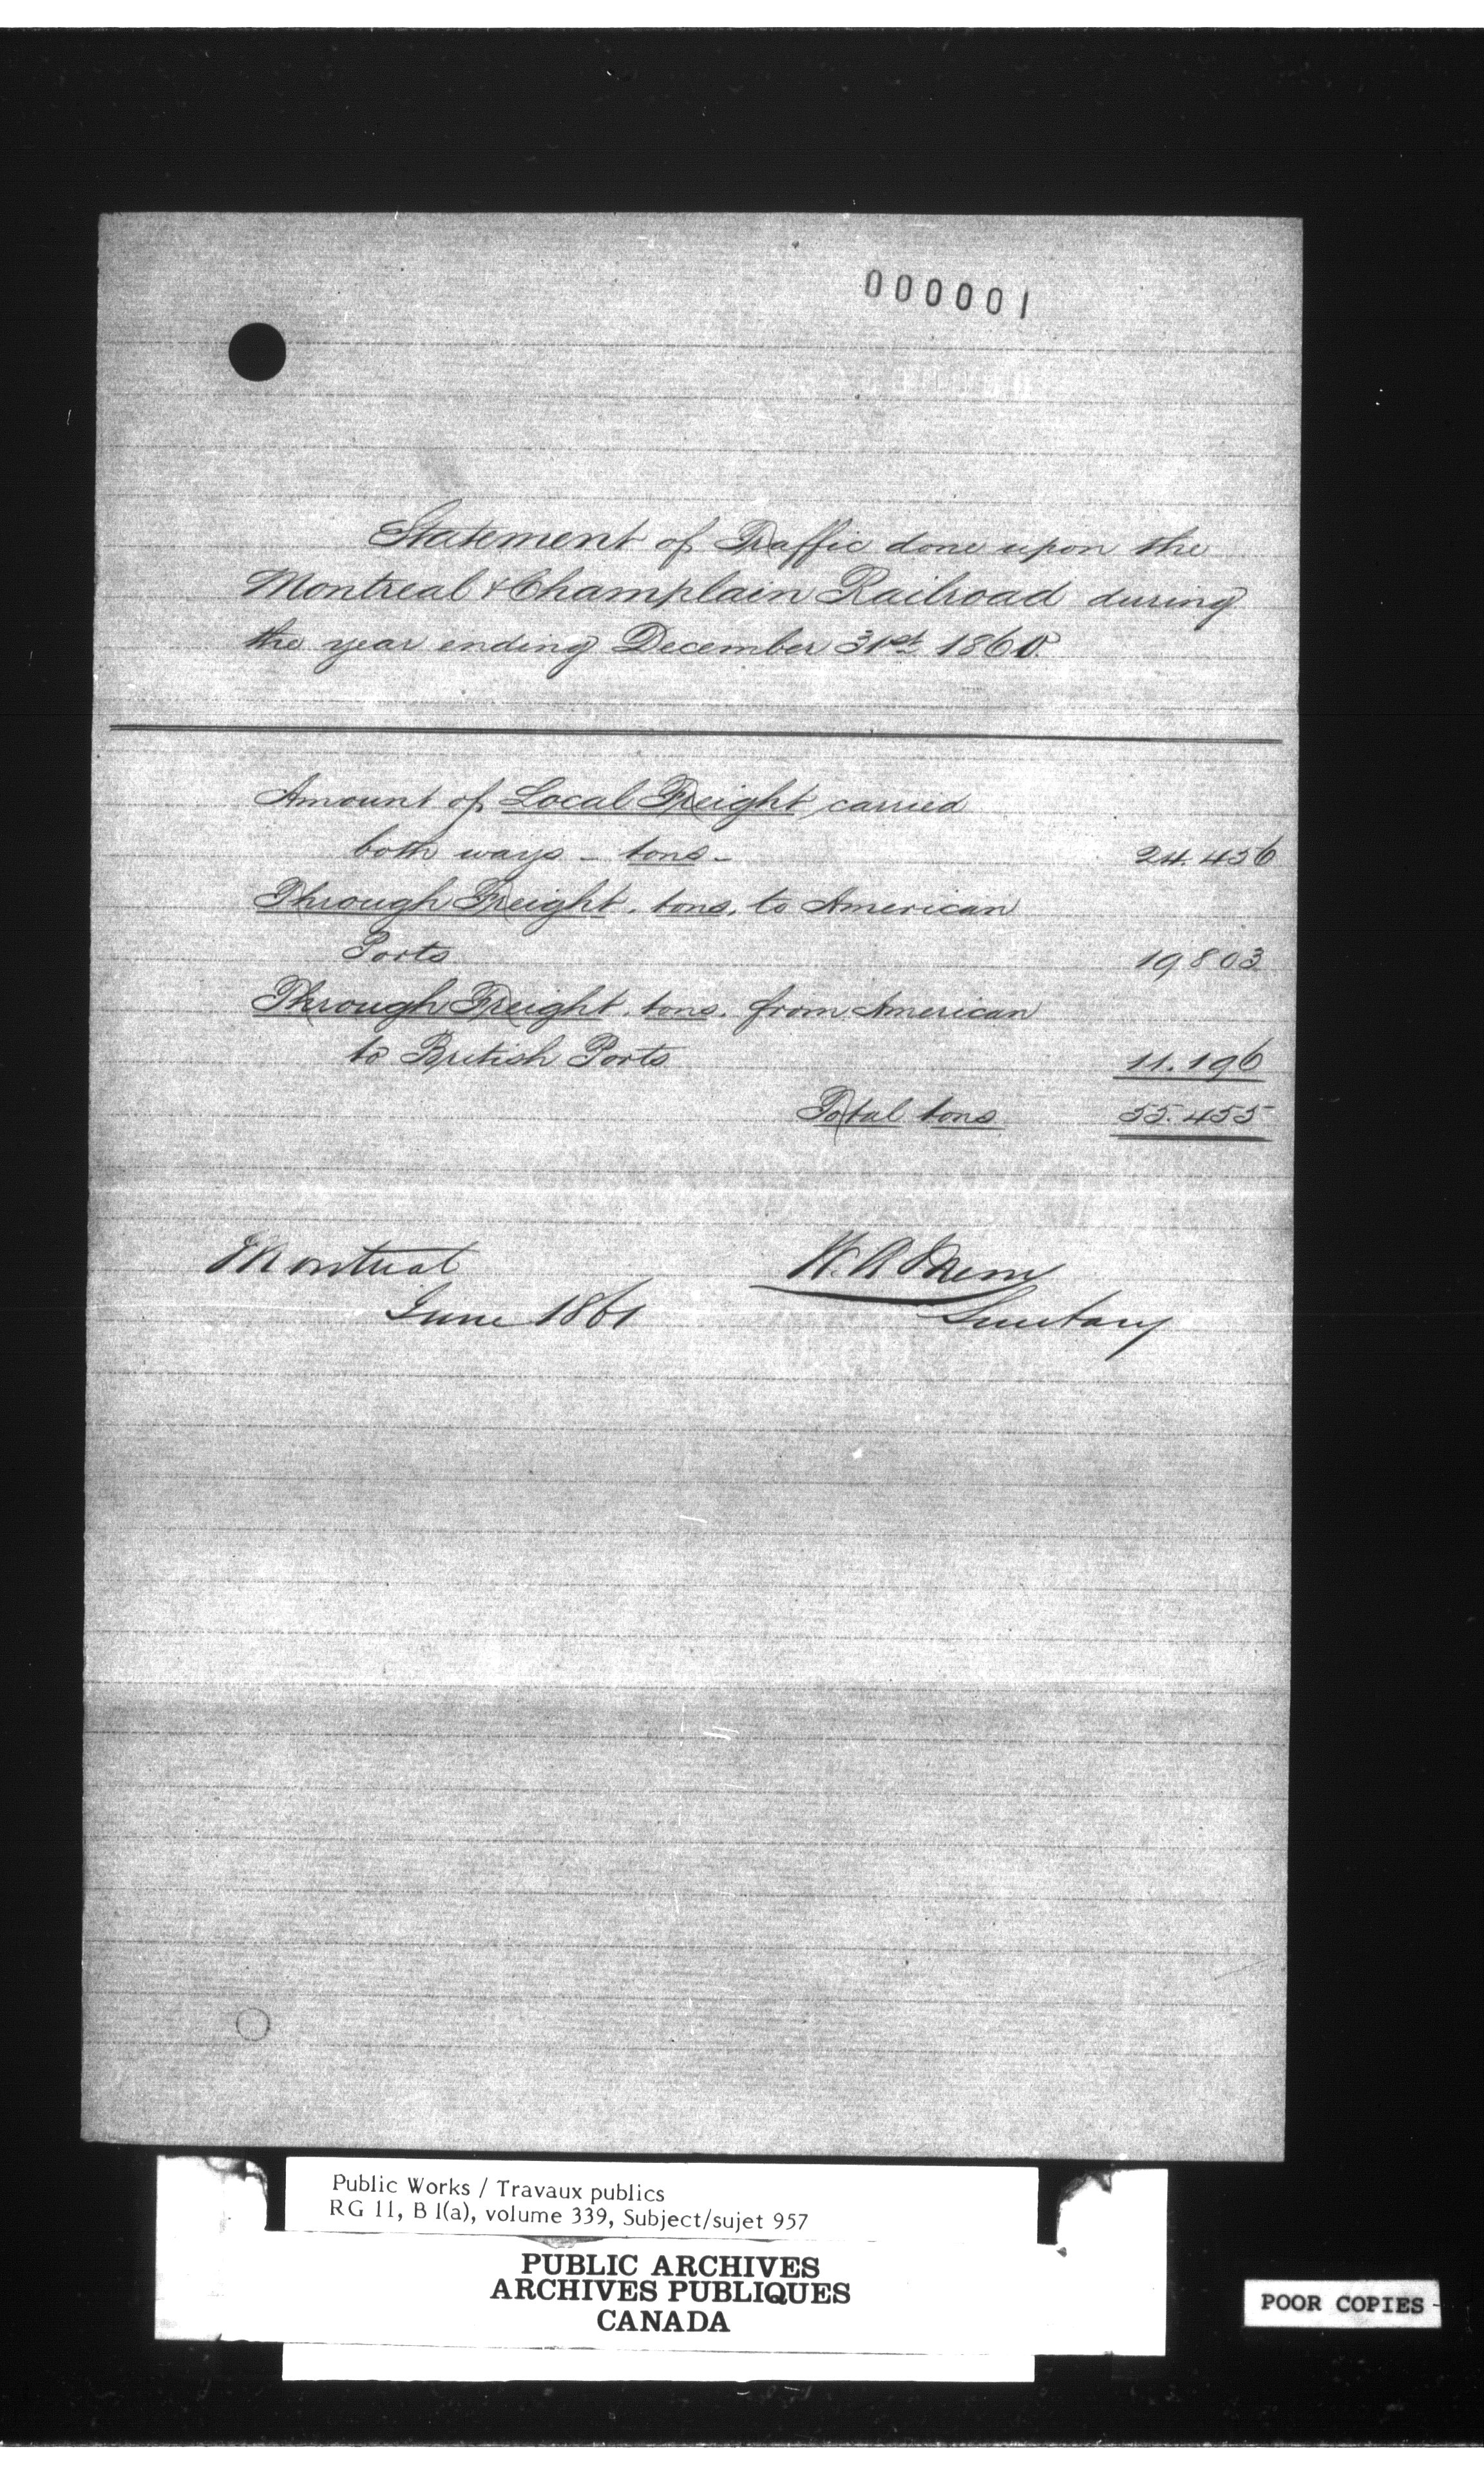 000001
Statement of Traffic done upon the
Montreal & Champlain Railroad during
the year ending December 31st 1860.
Amount of Local Freight carried
both ways - tons - 24.456
Through Freight. tons. to American
Ports 19803
Through Freight. tons. from American
to British Ports 11.196
Total tons 55.455
Montreal W. A.
June 1861 Secretary
Public Works / Travaux publics
RG 11, B 1(a), volume 339, Subject/sujet 957
PUBLIC ARCHIVES
ARCHIVES PUBLIQUES
CANADA
POOR COPIES